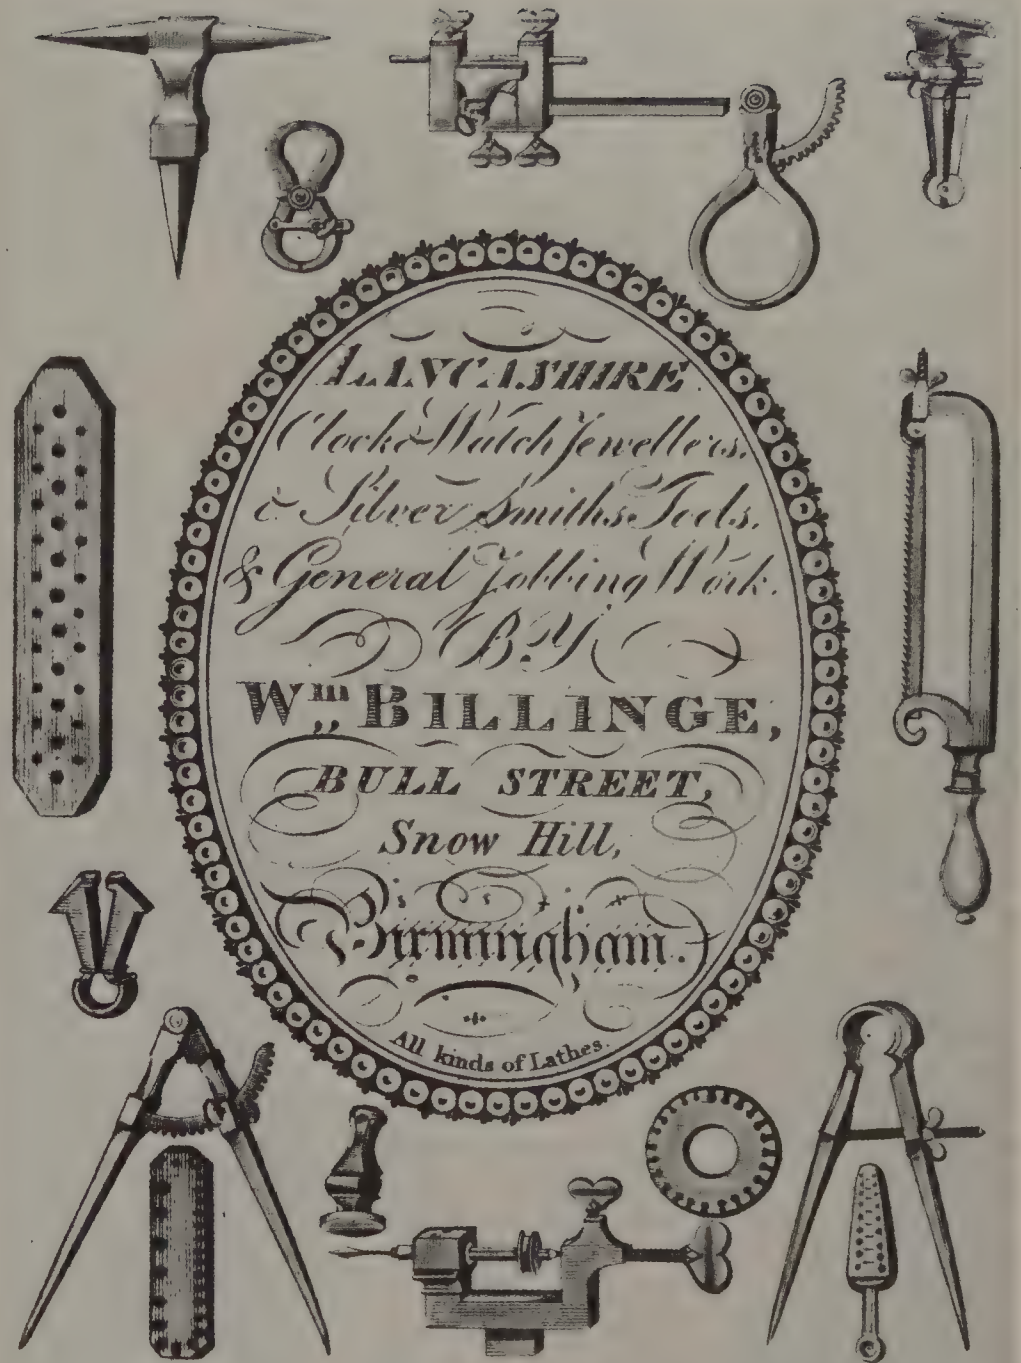 LANCASHIRE
Clock & Watch Jewellers.
& Silver Smiths Tools.
& General Jobbing Work.
BY
Wm,, BILLINGE,
BULL STREET,
Snow Hill,
Birmingham.
All kinds of Lathes.